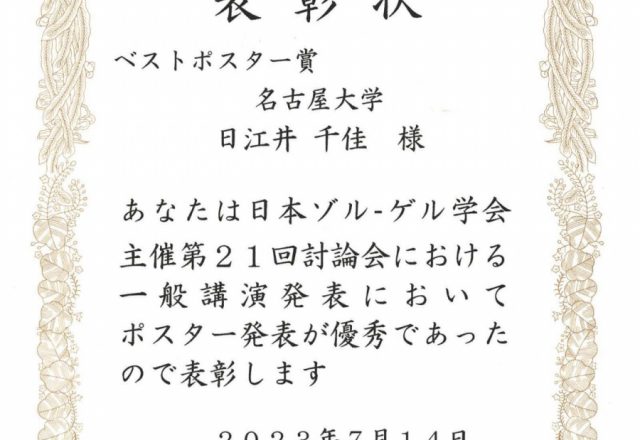 表彰状
ベストポスター賞
名古屋大学
日江井 千佳 様
あなたは日本ゾル-ゲル学会
主催第２１回討論会における
一般講演発表において
ポスター発表が優秀であった
ので表彰します
２０２３年７月１４日